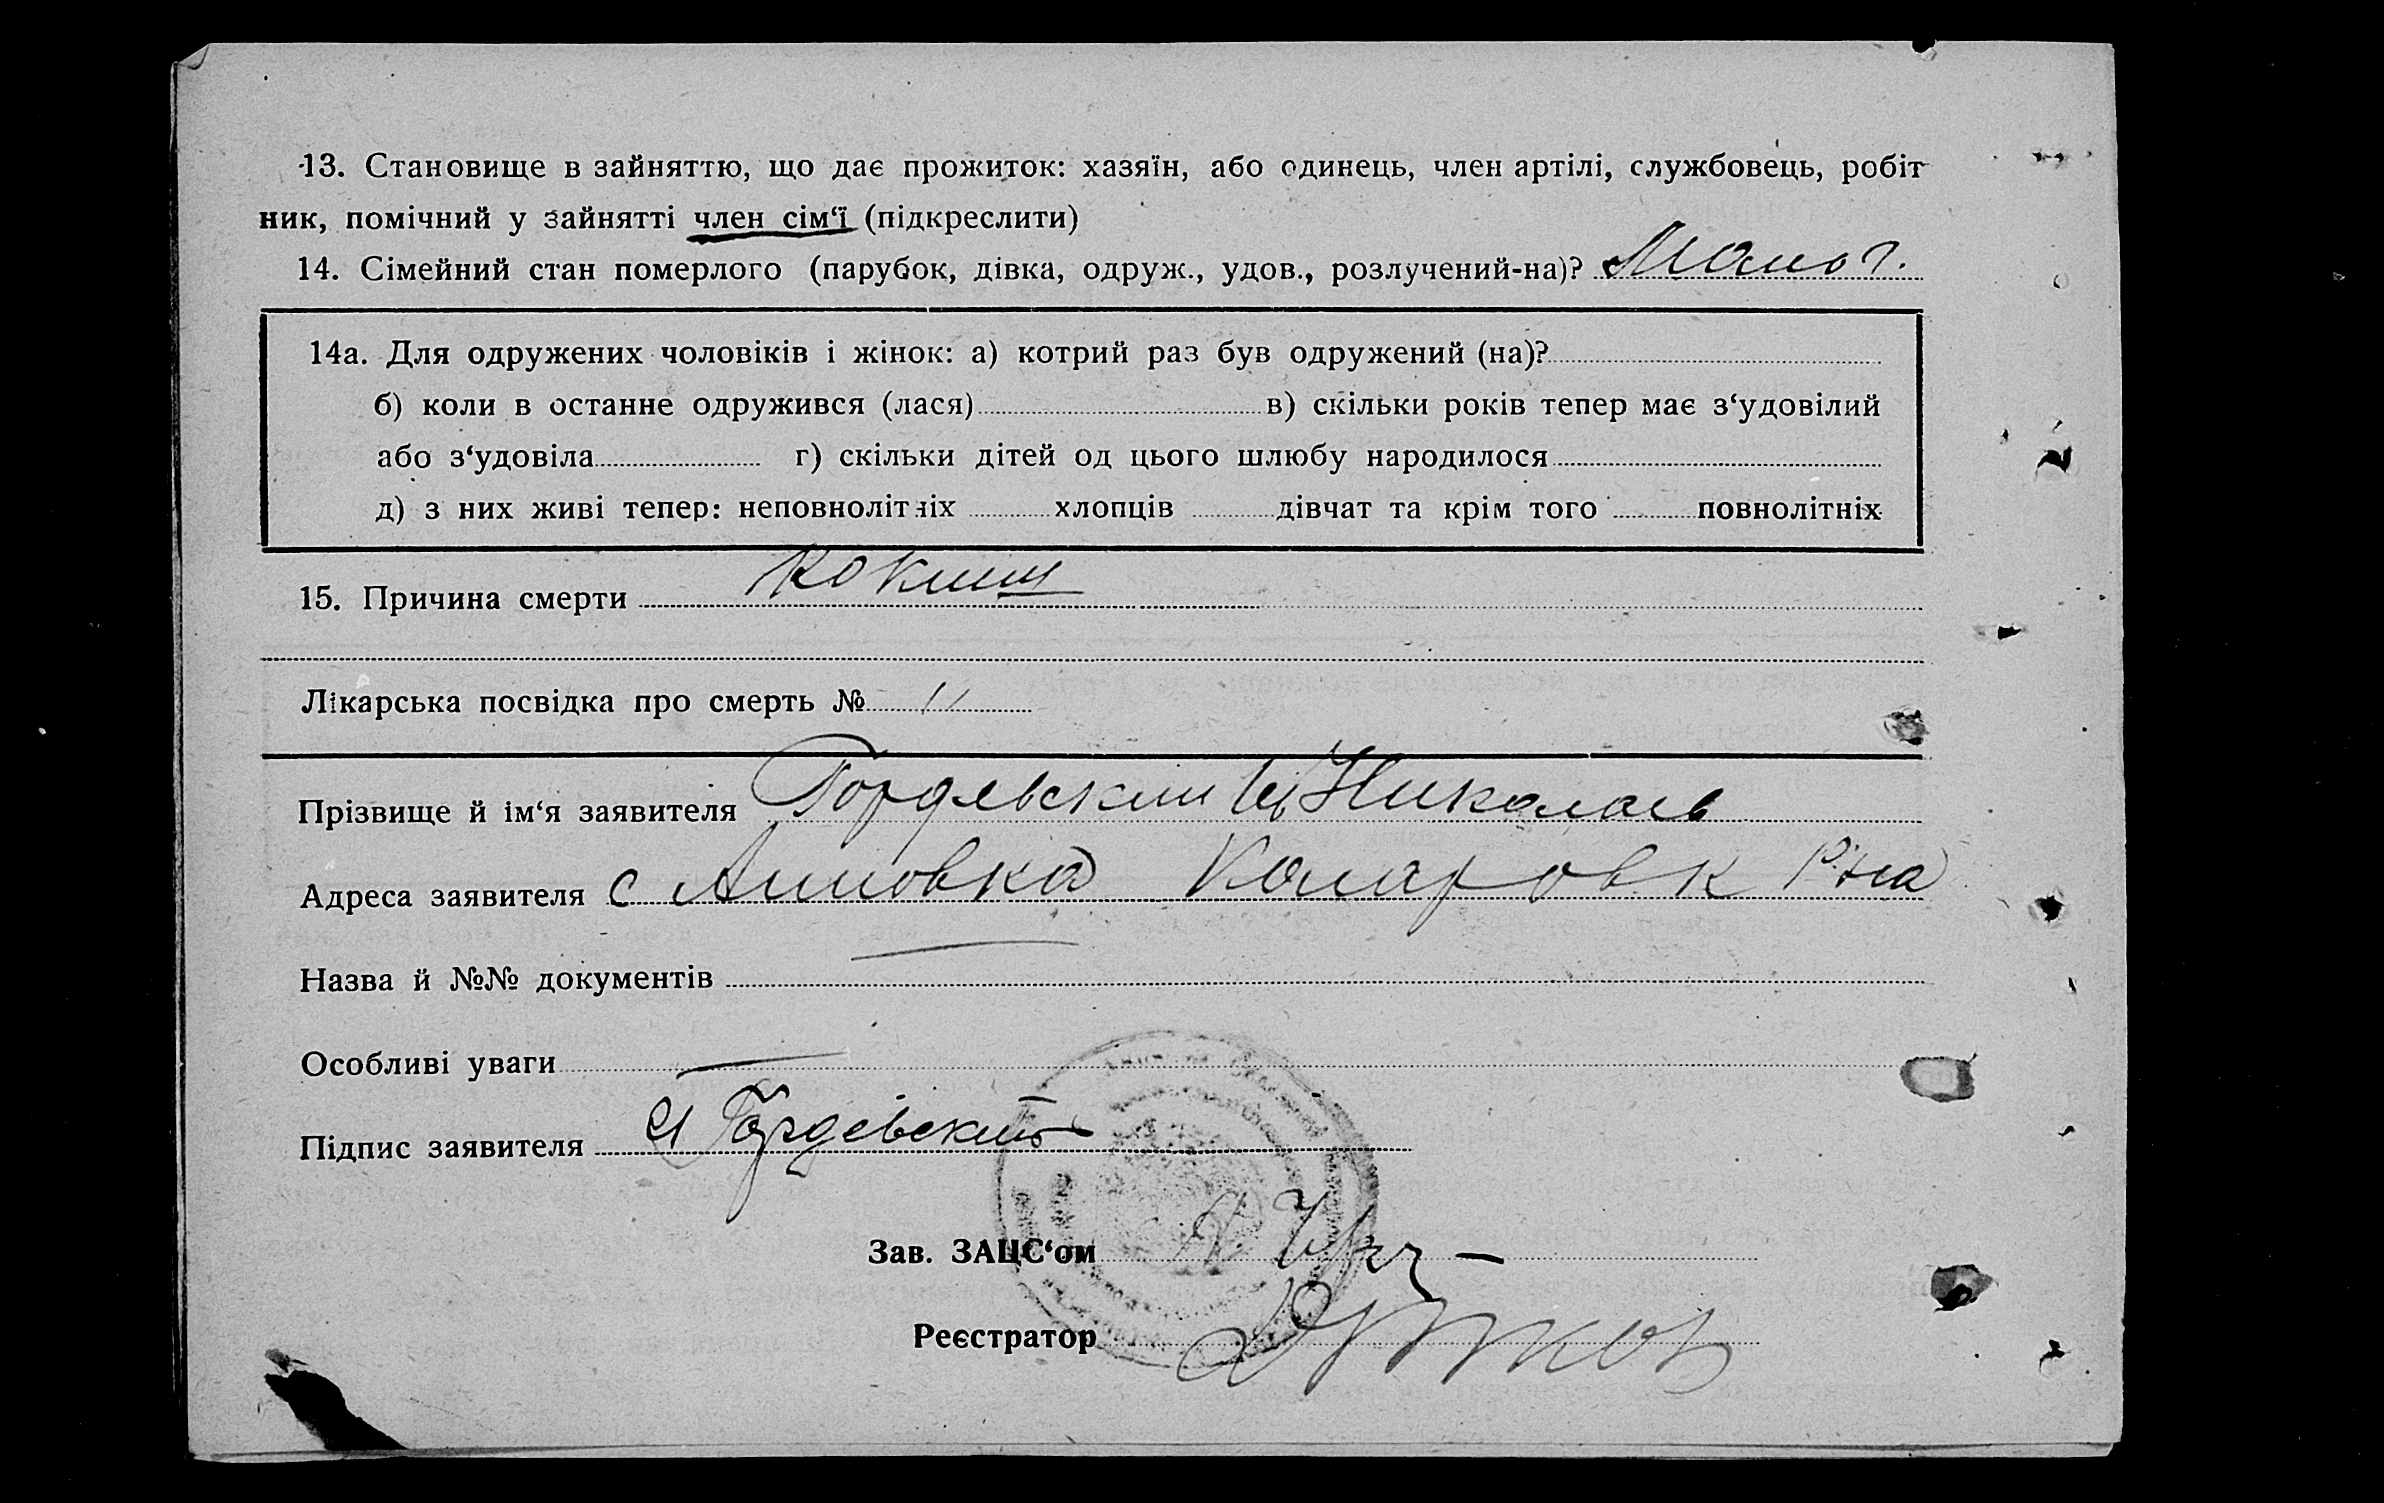 13. Становище в зайняттю, що дає прожиток: хазяїн, або одинець, член артілі, службовець, робіт
ник, помічний у зайнятті член сім‘ї (підкреслити)
14. Сімейний стан померлого (парубок, дівка, одруж., удов., розлучений-на)?
14а. Для одружених чоловіків і жінок: а) котрий раз був одружений (на)?
б) коли в останнє одружився (лася) в) скільки років тепер має з‘удовілий
або з‘удовіла г) скільки дітей од цього шлюбу народилося
д) з них живі тепер: неповнолітніх хлопців дівчат та крім того повнолітніх
15. Причина смерти Коклиш
Лікарська посвідка про смерть №
Прізвище й ім‘я заявителя Николаев
Адреса заявителя с Р-на
Назва й №№ документів
Особливі уваги
Підпис заявителя Гордевский
Зав. ЗАЦС‘ом
Реєстратор